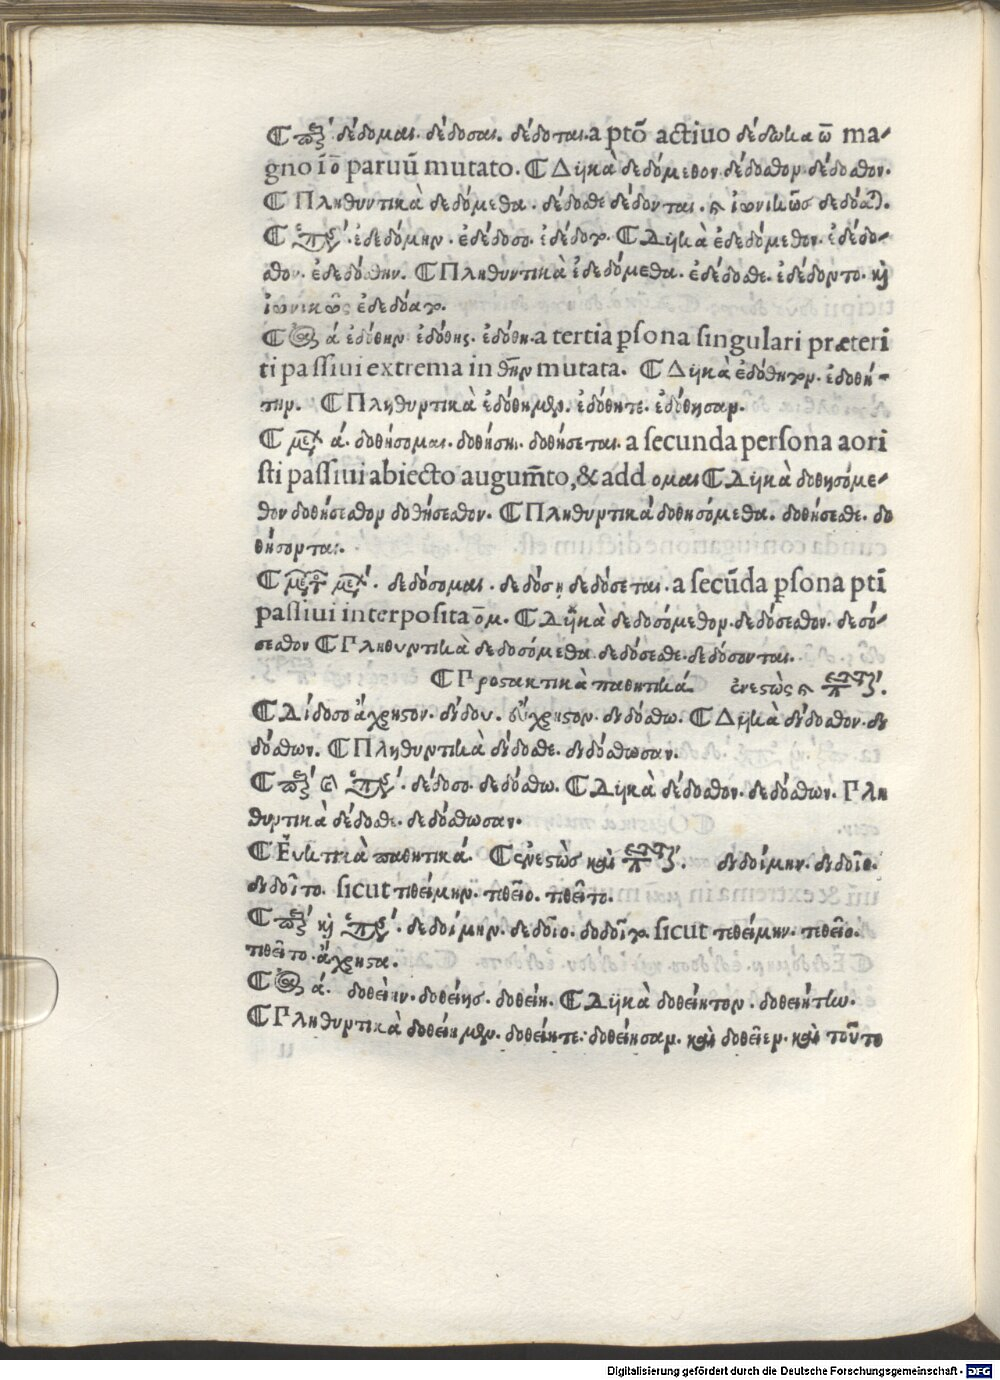 δέδομαι. δέδοσαι. δέδοται. a ptō actiuo δέδωκα ω̄ ma-
gno ī ō paruū mutato. ¶ Δυϊκὰ δεδόμεθον. δέδοσθον. δέδοσθον.
¶ Πληθυντικὰ δεδόμεθα. δέδοσθε δέδονται. ἰωνικῶς
ἐδεδόμην. ἐδέδοσο. ἐδέδοτο. ¶ Δυϊκὰ ἐδεδόμεθον. ἐδέδο-
σθον. ἐδεδόσθην. ¶ Πληθυντικὰ ἐδεδόμεθα. ἐδέδοσθε. ἐδέδοντο. ϗ
ἰωνικῶς ἐδεδόατο.
ά ἐδόθην ἐδόθης. ἐδόθη. a tertia ꝑsona singulari præteri
ti passiui extrema in θην mutata. ¶ Δυϊκὰ ἐδόθητον. ἐδοθή-
την. ¶ Πληθυντικὰ ἐδόθημεν. ἐδόθητε. ἐδόθησαν.
¶ ά. δοθήσομαι. δοθήσῃ. δοθήσεται. a secunda persona aori
sti passiui abiecto augum̄to, & add ομαι ¶ Δυϊκὰ δοθησόμε-
θον δοθήσεσθον δοθήσεσθον. ¶ Πληθυντικά δοθησόμεθα. δοθήσεσθε. δο
θήσονται.
δεδόσομαι. δεδόσῃ δεδόσεται. a secūda ꝑsona ptī
passiui interposita ο̄μ. ¶ Δυϊκὰ δεδοσόμεθον. δεδόσεσθον. δεδό-
σεσθον ¶ Γληθυντικὰ δεδοσόμεθα δεδόσεσθε. δεδόσονται.
¶ Γροστακτικὰ παθητικά. ἐνεστὼς
¶ Δίδοσο ἄχρηστον. δίδου. εὔχρηστον. διδόσθω. ¶ Δυϊκὰ δίδοσθον. δι
δόσθων. ¶ Πληθυντικὰ δίδοσθε. διδόσθωσαν.
δέδοσο. δεδόσθω. ¶ Δυϊκὰ δέδοσθον. δεδόσθων. Γλη
θυντικὰ δέδοσθε. δεδόσθωσαν.
¶ Εὐκτικὰ παθητικά. ¶ ἐνεστὼς καὶ διδοίμην. διδοῖο.
διδοῖτο. sicut τιθείμην. τιθεῖο. τιθεῖτο.
ϗ δεδοίμην. δεδοῖο. sicut τεθείμην. τεθεῖο.
τεθεῖτο. ἄχρηστα.
ά. δοθείην. δοθείης. δοθείη. ¶ Δυϊκὰ δοθείητον. δοθειήτην.
¶ Γληθυντικὰ δοθείημεν. δοθείητε: δοθείησαν. καὶ δοθεῖεν. καὶ τοῦτο
Digitalisierung gefördert durch die Deutsche Forschungsgemeinschaft - DFG